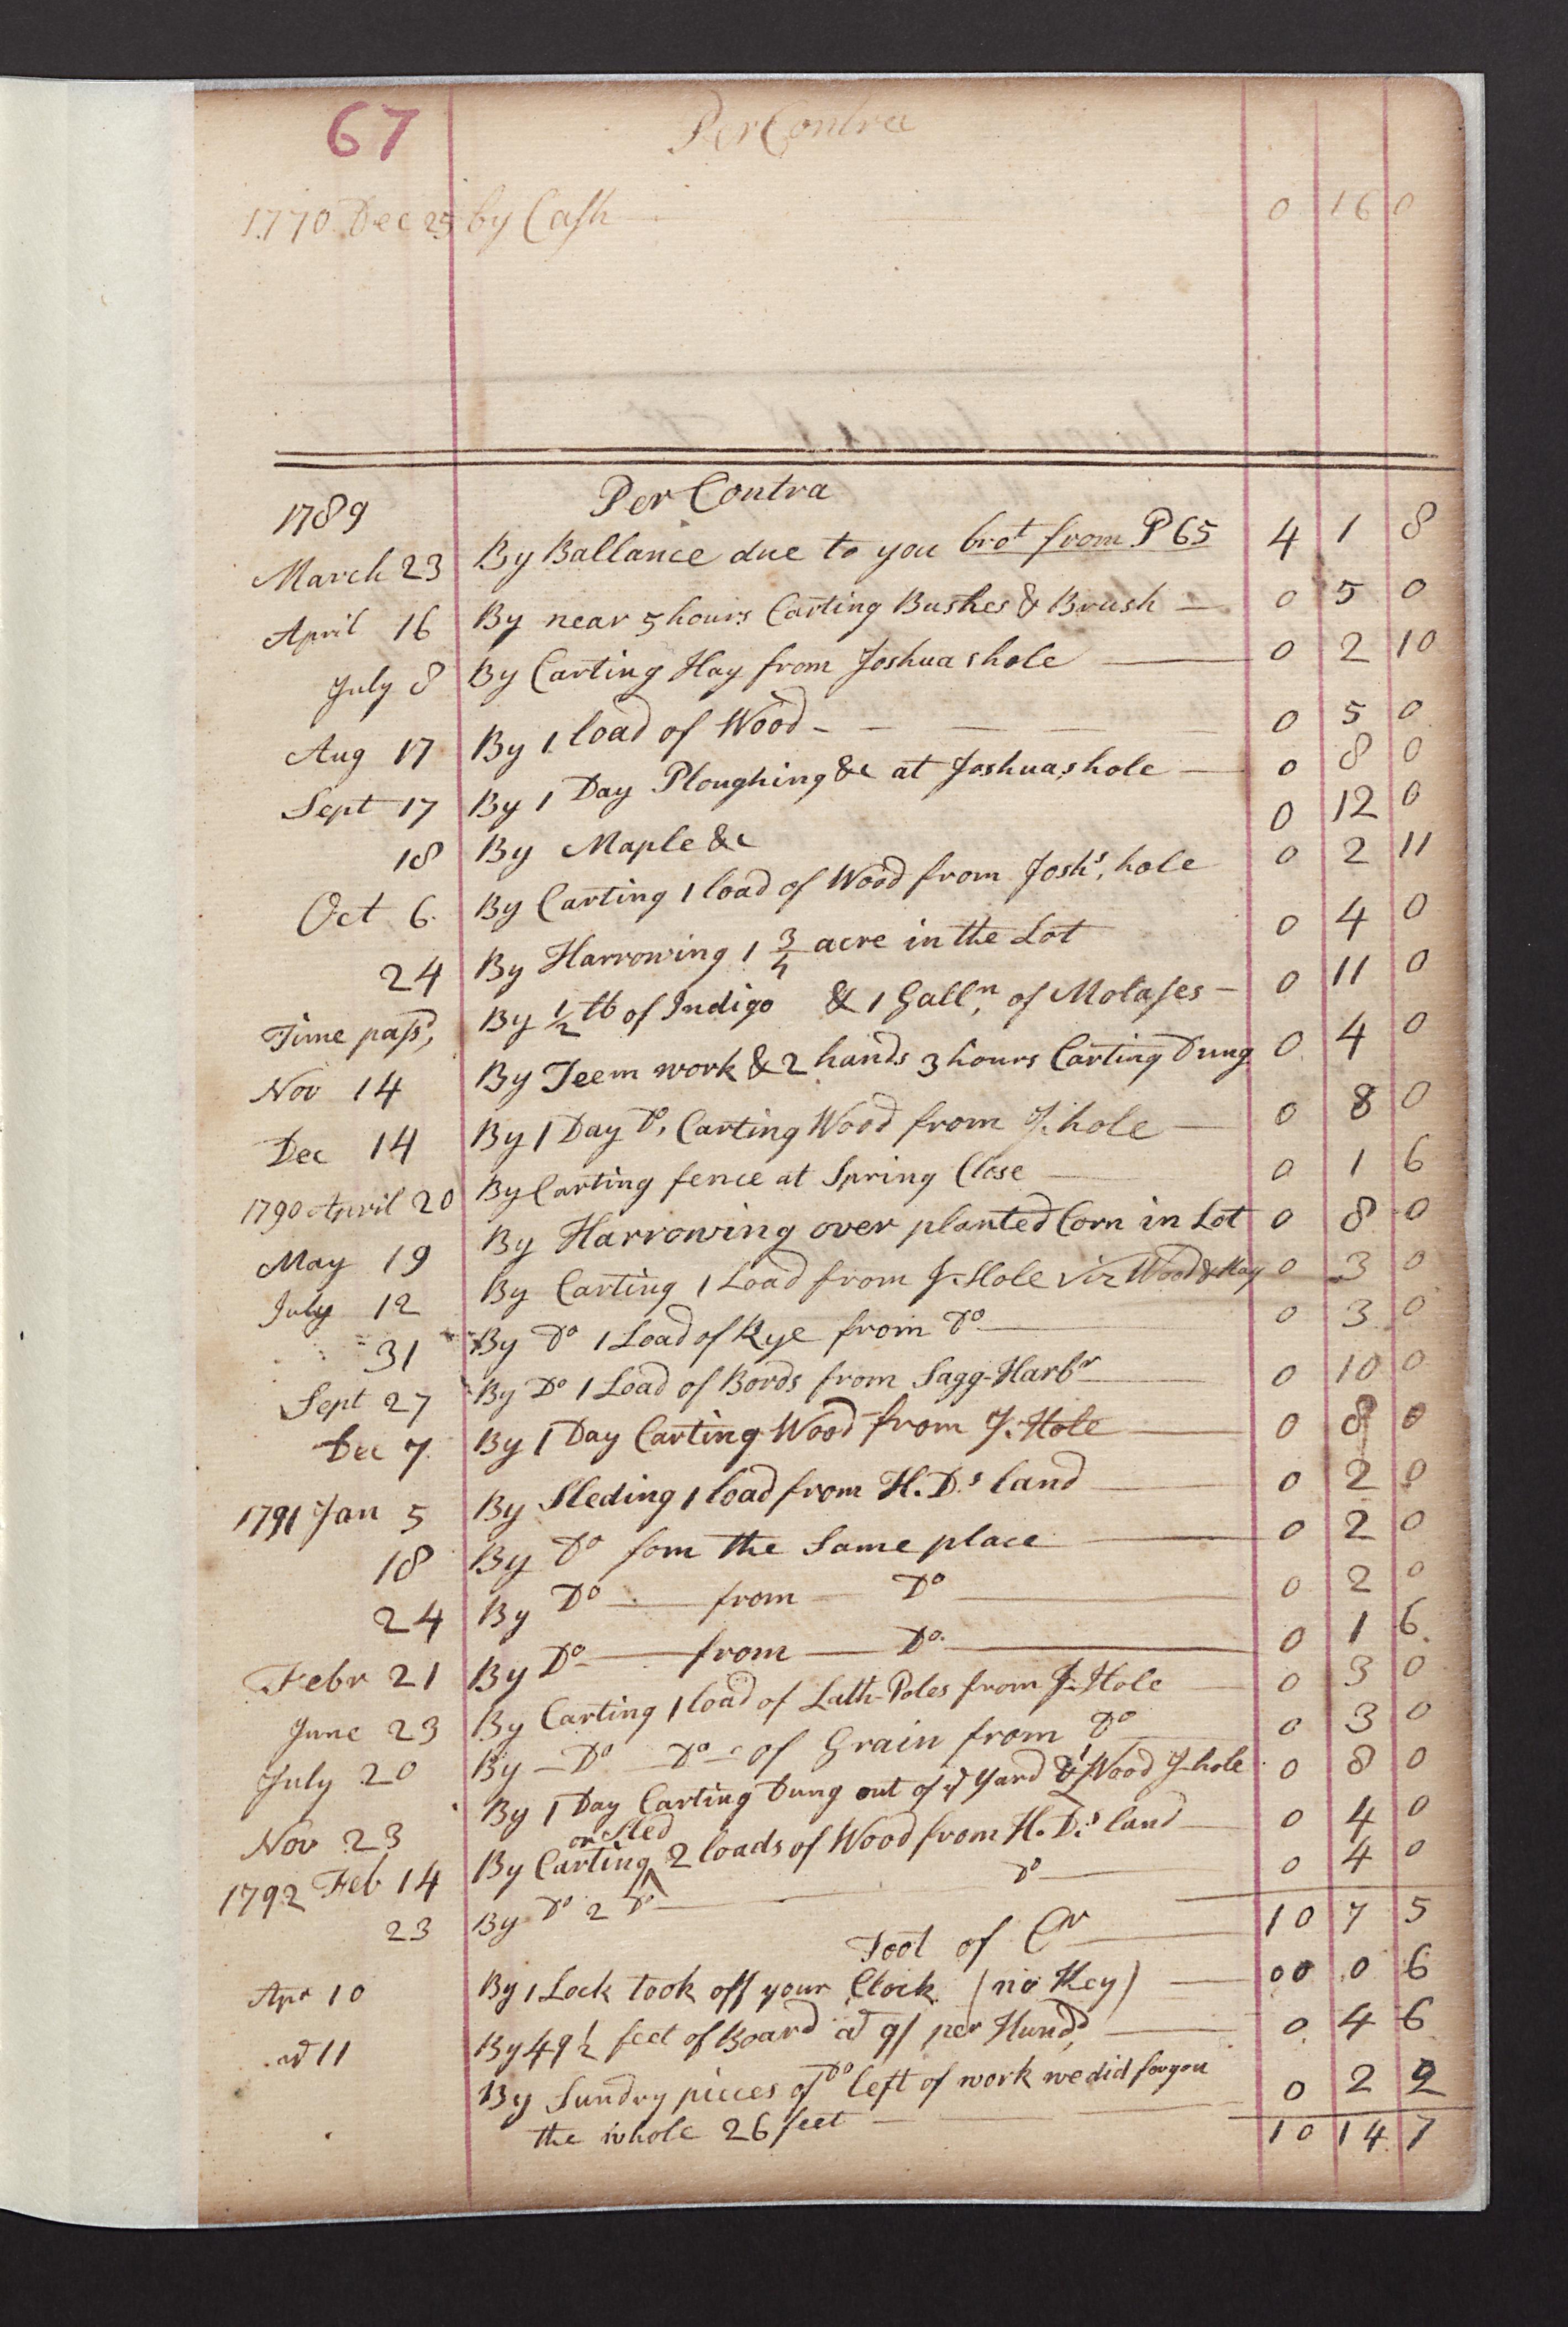 67 Per Contra
1770 Dec 25 by Cash 0 16 0
Per Contra
1789
March 23 By Ballance due to you brot from P 65 4 1 8
April 16 By near 5 hours Carting Bushes & Brush 0 5 0
July 8 By Carting Hay from Joshuashole 0 2 10
Aug 17 By 1 load of Wood 0 5 0
Sept 17 By 1 Day Ploughing &c at Joshuashole 0 8 0
18 By Maple &c 0 12 0
Oct 6 By Carting 1 load of Wood from Joshs, hole 0 2 11
24 By Harrowing 1 3/4 acre in the Lot 0 4 0
Time pasd, By 1/2 lb of Indigo & 1 Galln, of Molases 0 11 0
Nov 14 By Teem work & 2 hands 3 hours Carting Dung 0 4 0
Dec 14 By 1 Day Do, Carting Wood from J. hole 0 8 0
1790 April 20 By Carting fence at Spring Close 0 1 6
May 19 By Harrowing over planted Corn in Lot 0 8 0
July 12 By Carting 1 Load from J. Hole viz Wood & Hay 0 3 0
31 By Do 1 Load of Rye from Do 0 3 0
Sept 27 By Do 1 Load of Bords from Sagg-Harbr 0 10 0
Dec 7 By 1 Day Carting Wood from J. Hole 0 8 0
1791 Jan 5 By Sleding 1 load from H. D.s land 0 2 0
18 By Do fom the Same place 0 2 0
24 By Do from Do 0 2 0
Febr 21 By Do from Do 0 1 6
June 23 By Carting 1 load of Lath-Poles from J-Hole 0 3 0
July 20 By Do Do of Grain from Do 0 3 0
Nov 23 By 1 Day Carting Dung out of ye Yard & 1 Wood J-hole 0 8 0
or Sled
1792 Feb 14 By Carting 2 loads of Wood from H. D.s land 0 4 0
23 By Do 2 Do Do 0 4 0
Foot of Cr 10 7 5
Apr 10 By 1 Lock took off your Clock (no Key) 00 0 6
11 By 49 1/2 feet of Board at 9/ per Hundd, 0 4 6
By Sundry pieces of Do left of work we did for you
the whole 26 feet 0 2 2
10 14 7